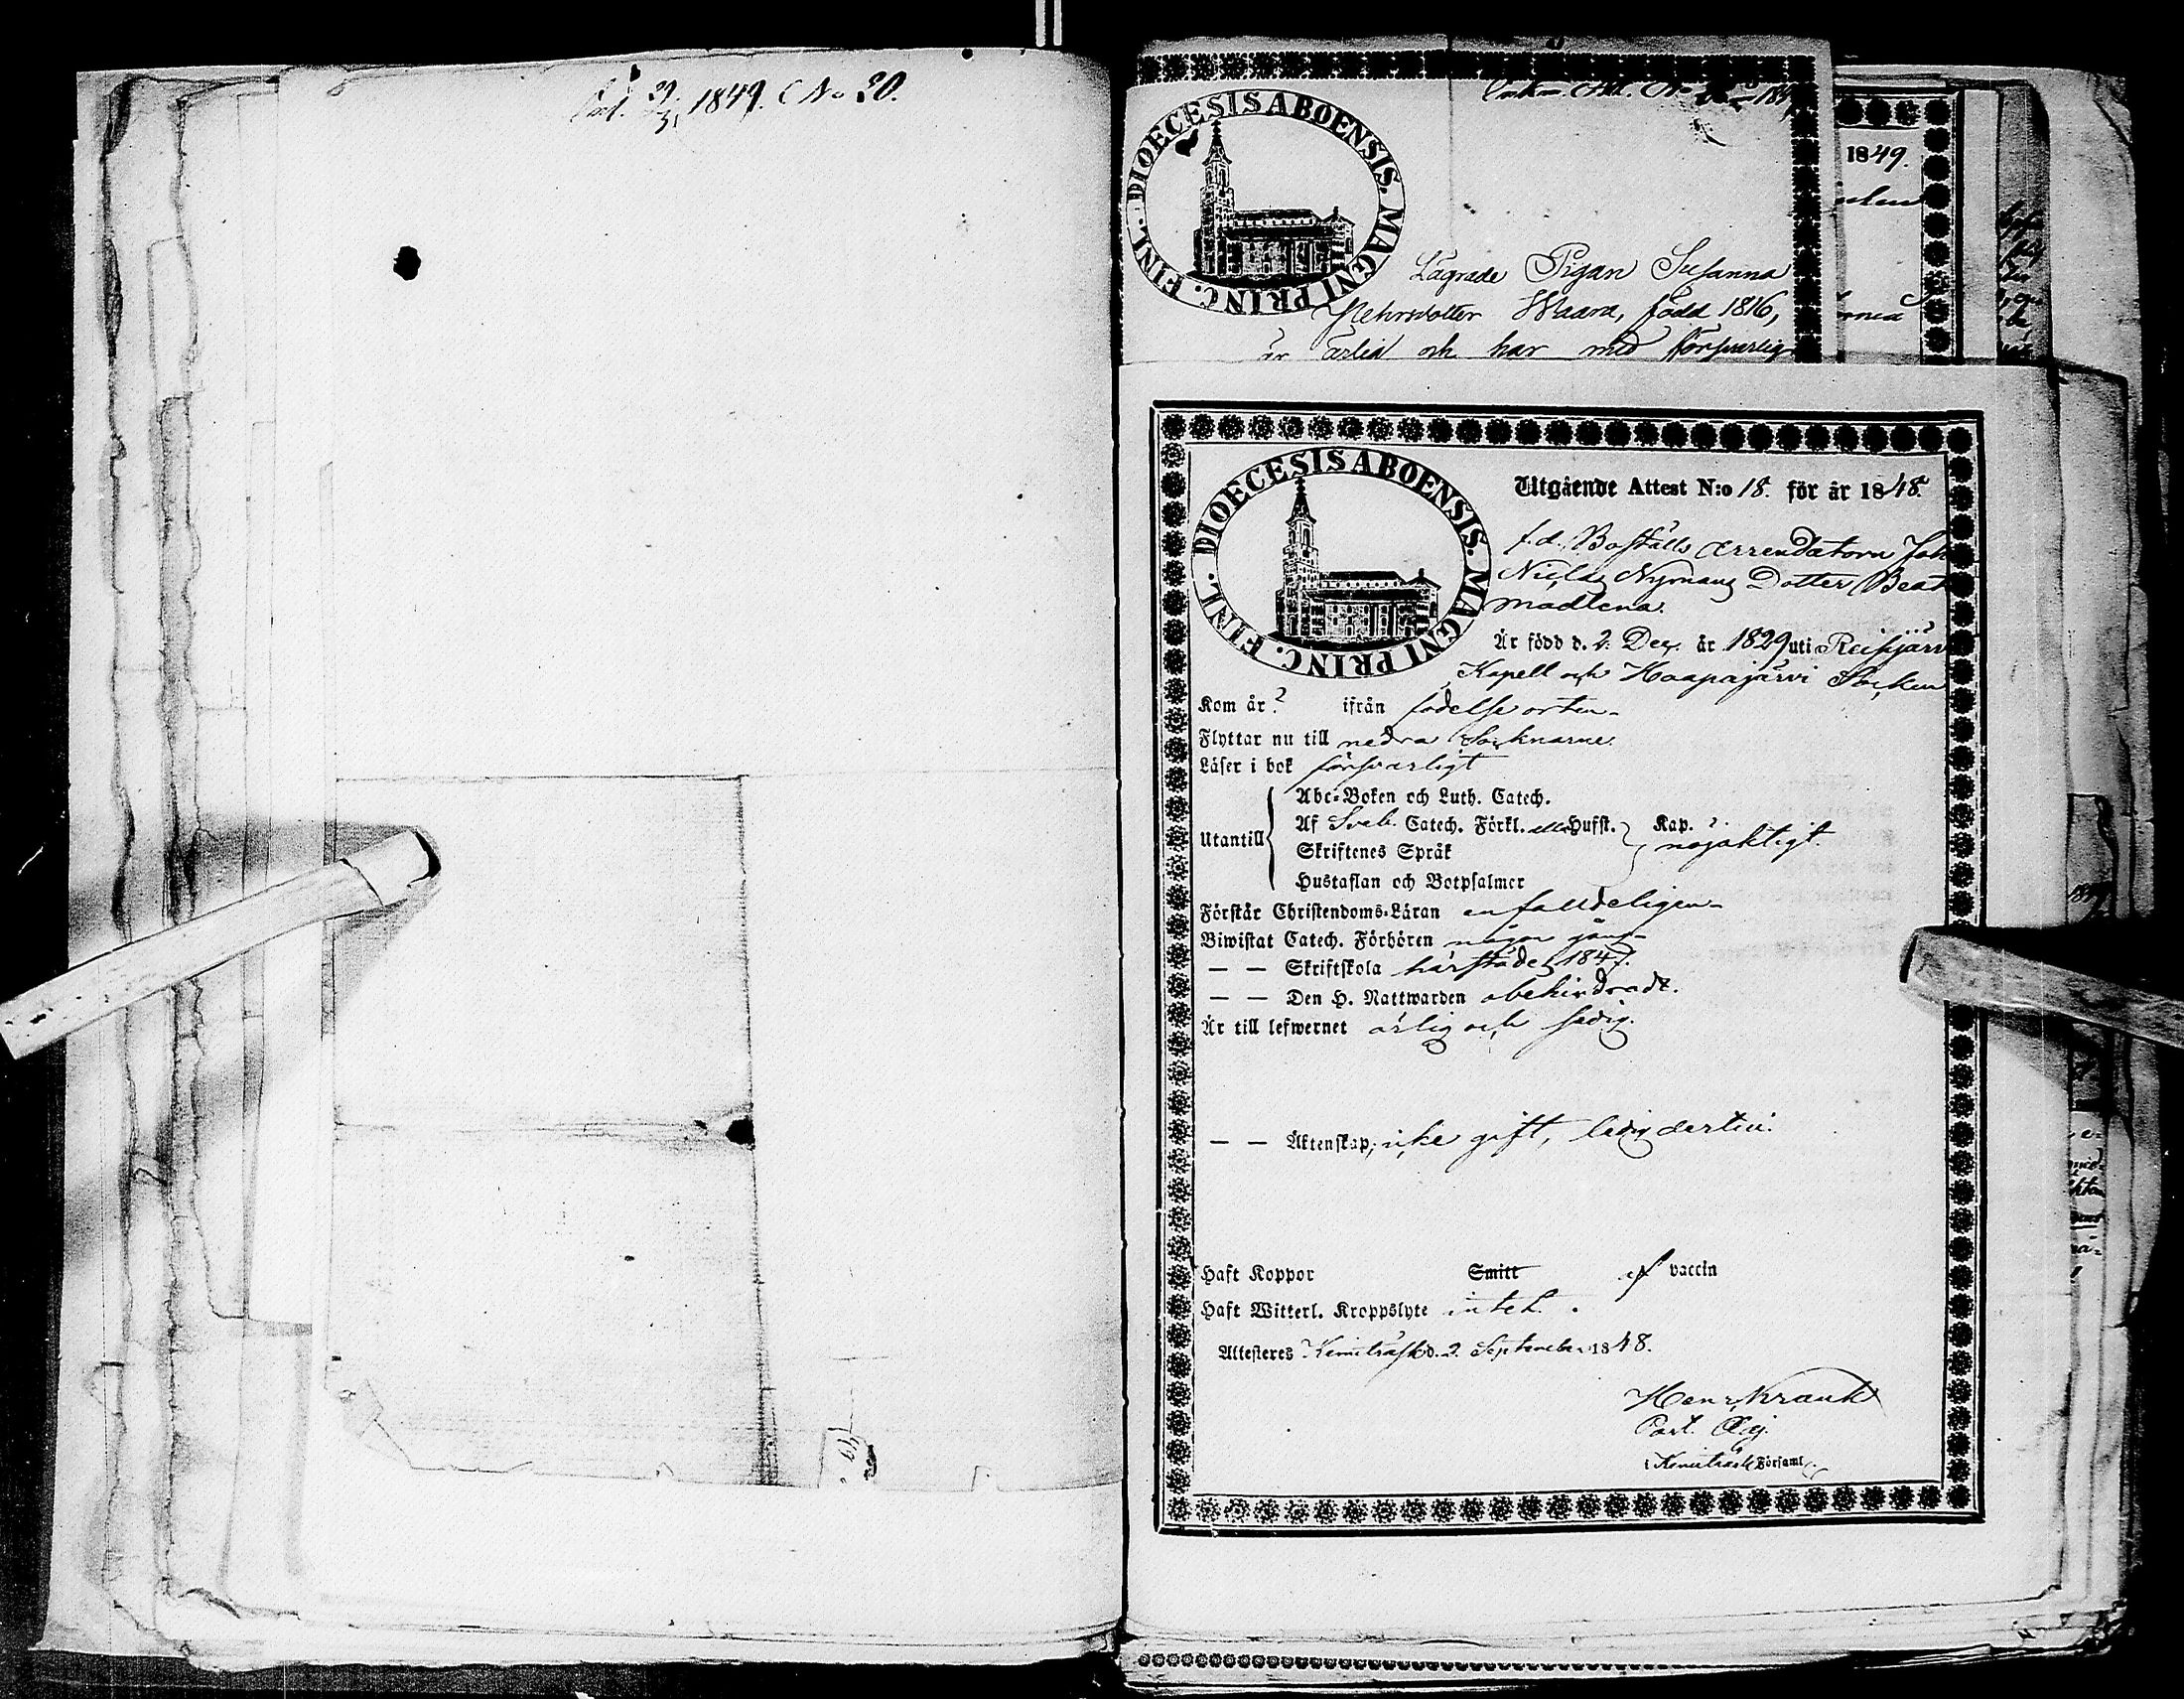 29/3 1849. No 20.
DIOECESIS ABOENSIS. MAGNI PRINC. FINL.
184
Lägrade Pigan Susanna
Pehrsdotter Waara, född 1816,
är ärlig och har med försvarlig
1849.
DIOECESIS ABOENSIS. MAGNI PRINC. FINL.
Utgående Attest N:o 18. för år 1848.
f.d. Boställs Arrendatorn Joh
Niclas Nymans Dotter Beat
Madlena.
Är född d. 2. Dec. år 1829 uti Reisjärv
Kapell och Haapajärvi Socken
Kom år ? ifrån födelseorten
Flyttar nu till nedra Socknarne.
Läser i bok försvarligt
Abc-Boken och Luth. Catech.
Utantill Af Sveb. Catech. Förkl. eller Hufst. Kap. nöjaktigt.
Skriftenes Språk
Hustaflan och Botpsalmer
Förstår Christendoms-Läran enfalldeligen
Biwistat Catech. Förhören någon gång
— — Skriftskola härstädes 1847.
— — Den H. Nattwarden obehindradt.
Är till lefwernet ärlig och sedig.
— — Äktenskap, icke gift, ledig dertill.
Haft Koppor Smitt af vaccin
Haft Witterl. Kroppslyte intet.
Attesteras Kemiträsk d. 2. September 1848.
Henr. Krank
Past. Adj.
i Kemiträsk Församl.